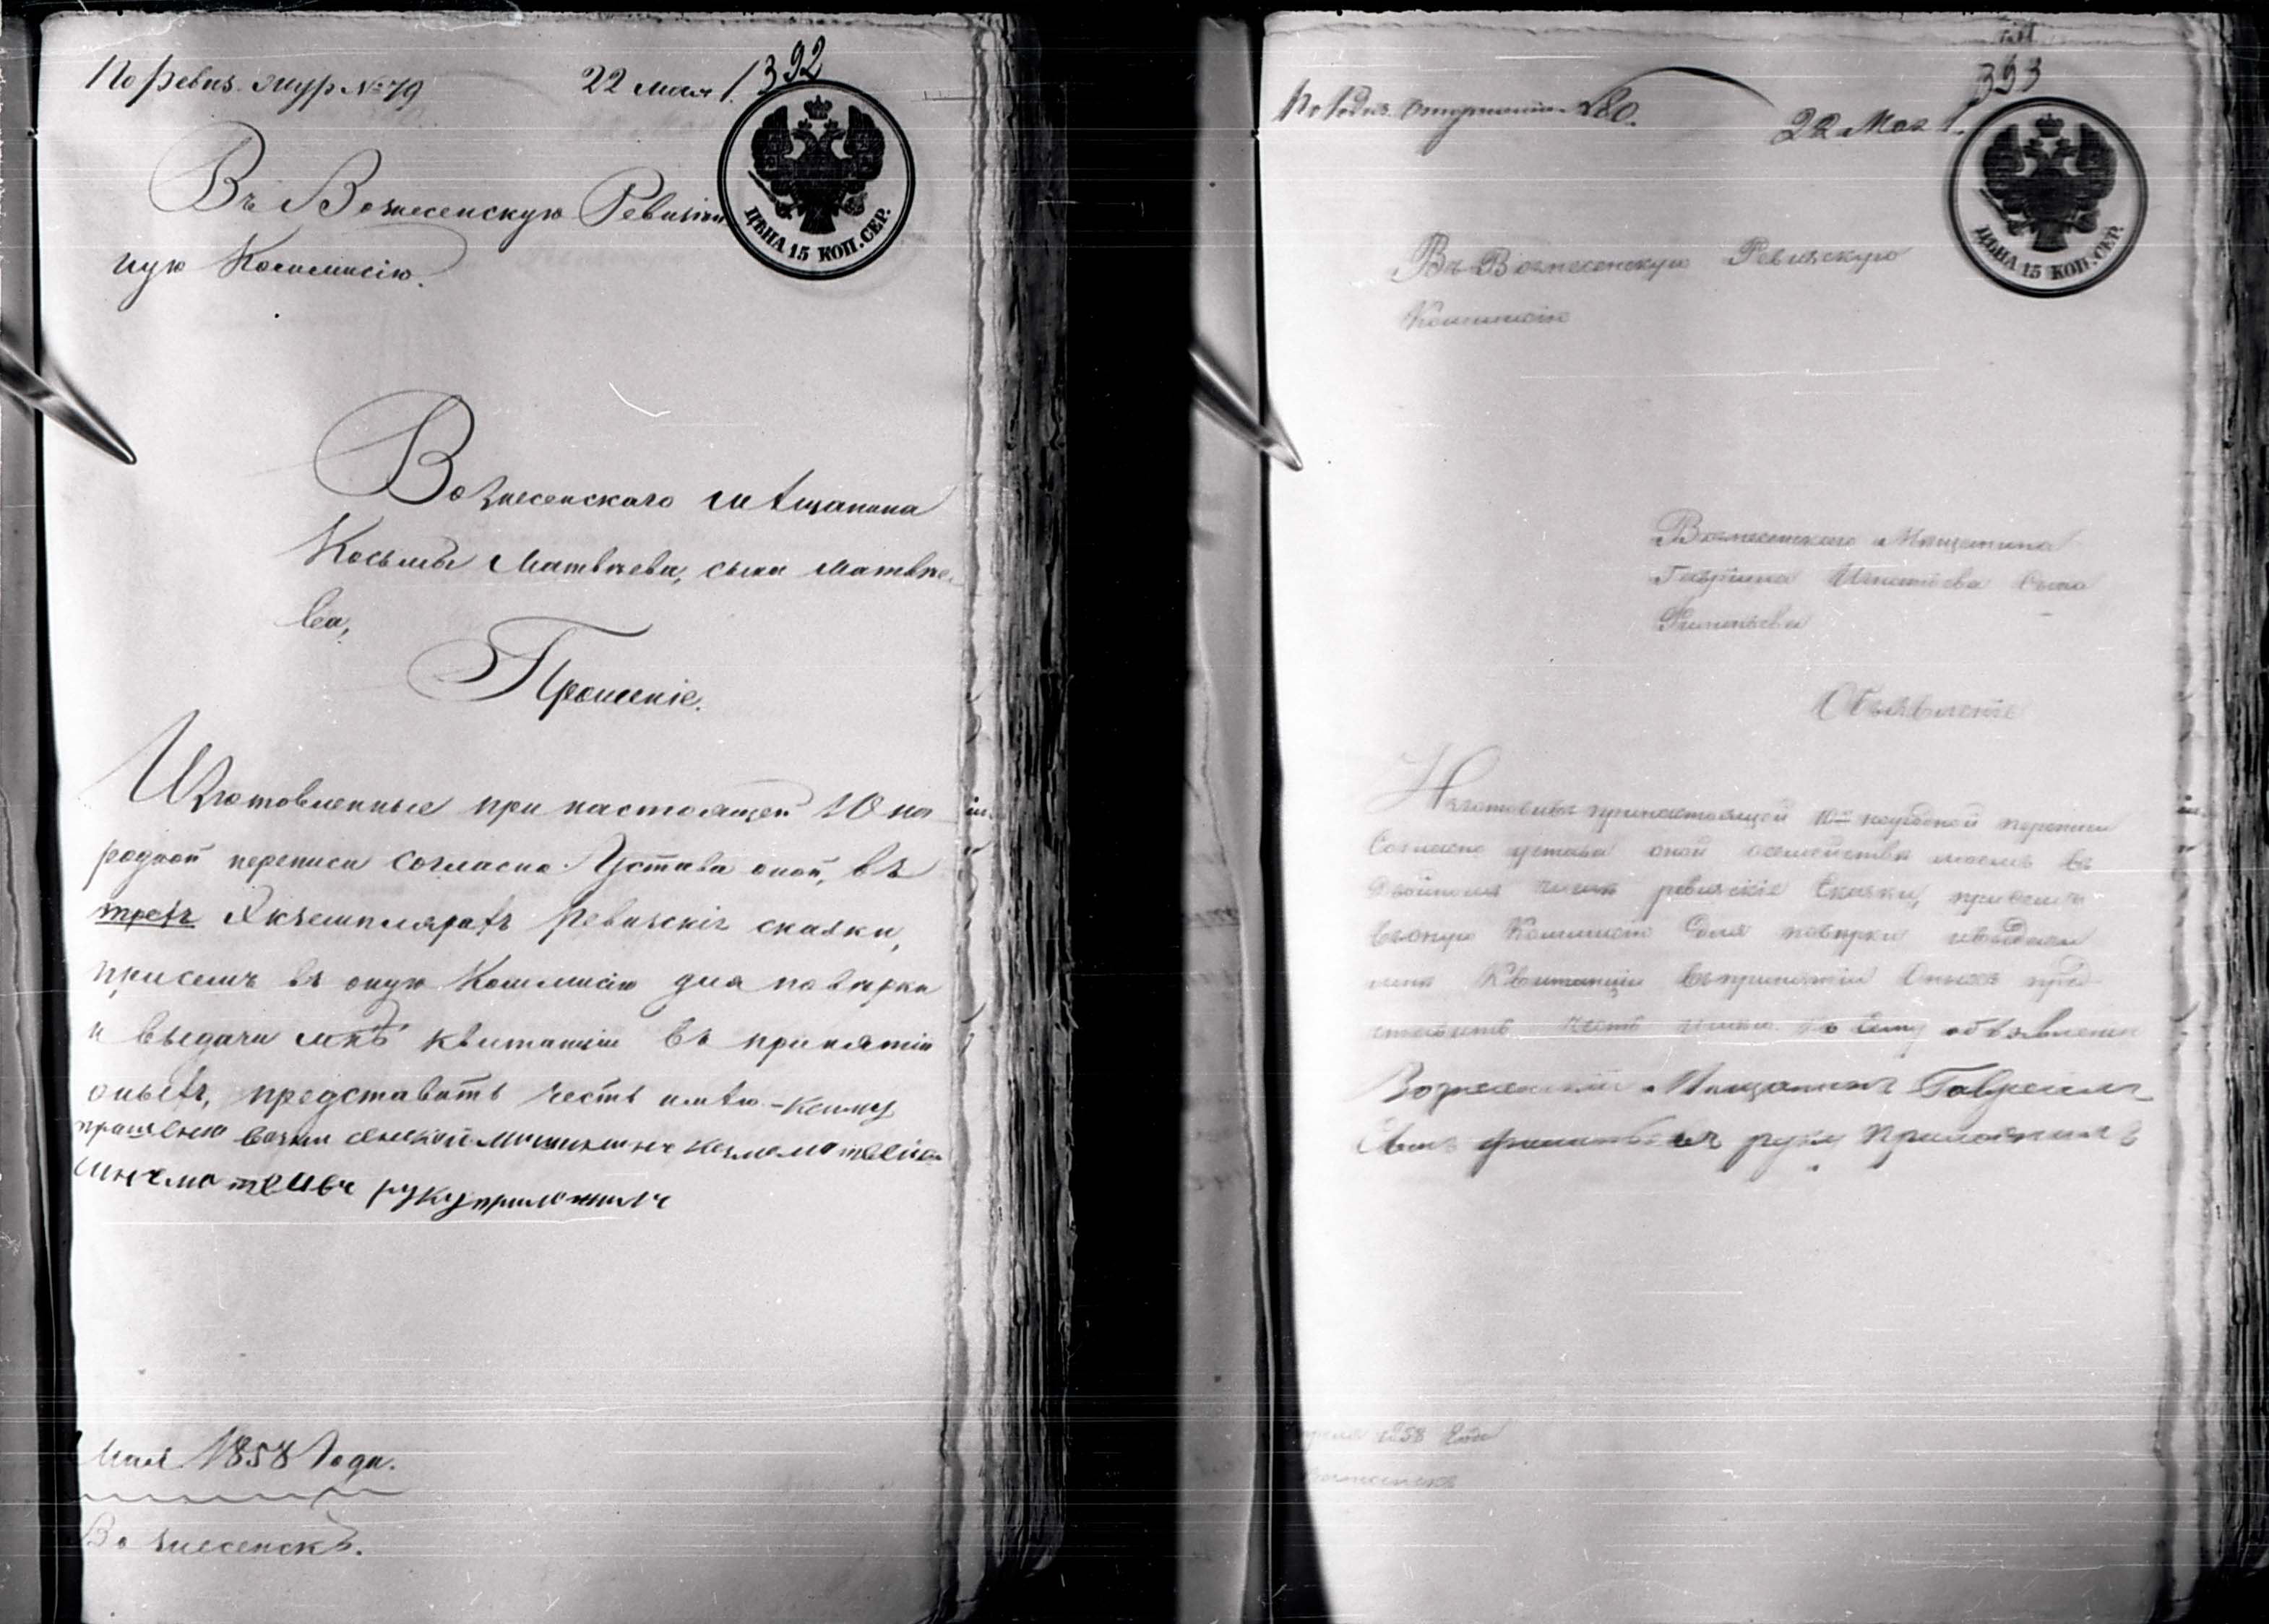 По Ревиз. жур № 79
22 мая 1.
392
Въ Вознесенскую Ревизіон
ную Коммисію.
ЦѢНА 15 КОП. СЕР.
Вознесенскаго мѣщанина
Косьмы Матвѣева, сына Матвѣе
ва,
Прошеніе.
Изготовленные при настоящей 10 на
родной переписи согласно Устава оной, въ
трехъ Экземплярахъ ревизскіе сказки,
при семъ въ оную Коммисію для повѣрки
и выдачи мнѣ квитанціи въ принятіи
оныхъ, представить честь имѣю.- К сему
прошению
руку приложилъ
Мая 1858 Года.
Вознесенскъ.
393
№ 80.
22 Мая 1.
ЦѢНА 15 КОП. СЕР.
Въ Вознесенскую Ревизскую
Коммисію
Вознесенскаго Мещанина
Гаврила Игнатіева Сына
Объявленіе
Изготовивъ при настоящей 10й народной переписи
Согласно устава оной о семействе моемъ въ
Двойномъ числе ревизскіе Сказки, при семъ
въ оную Коммисію для поверки и выдачи
мне Квитанціи въ принятіи Оныхъ пред-
ставить честь имею. К сему объявленію
Вознесенскій Мещанинъ Гавреилъ
руку приложилъ
1858 Года
Вознесенскъ